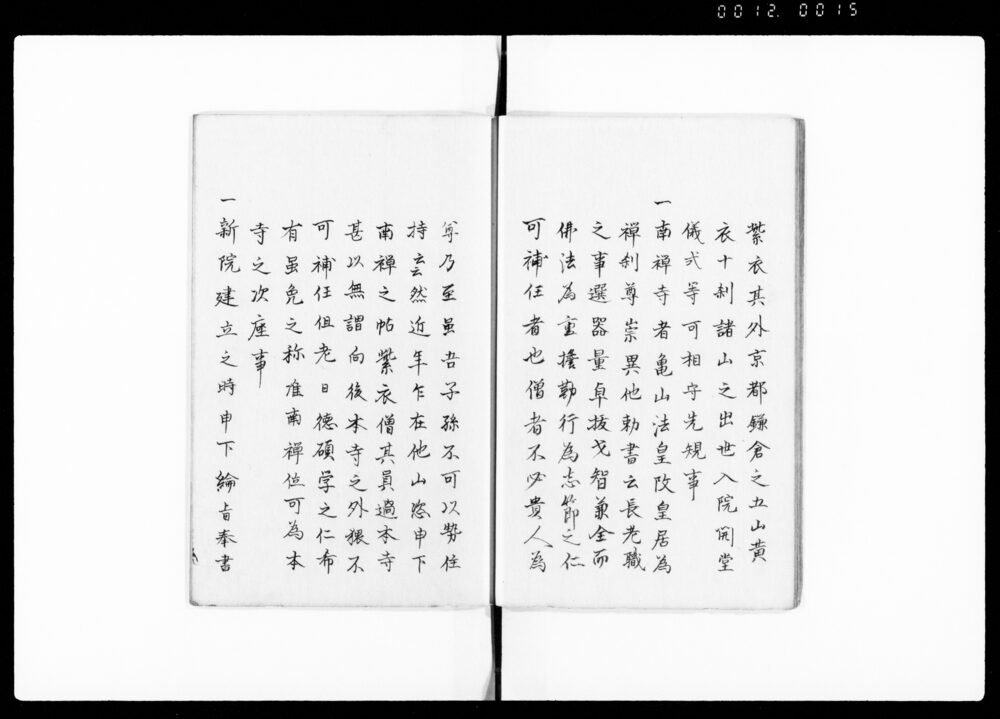 0012.0015
紫衣其外京都鎌倉之五山黄
衣十刹諸山之出世入院開堂
儀式等可相守先規事
一南禅寺者亀山法皇改皇居為
禅刹尊崇異他勅書云長老職
之事選器量卓抜戈智兼全而
佛法為重擔勤行為志節之仁
可補任者也僧者不必貴人為
尊乃至虽吾子孫不可以勢住
持云然近年乍在他山恣申下
南禅之帖紫衣僧其員過本寺
甚以無謂向後本寺之外猥不
可補任但老日德碩学之仁希
有虽免之称准南禅位可為本
寺之次座事
一新院建立之時申下綸旨奉書